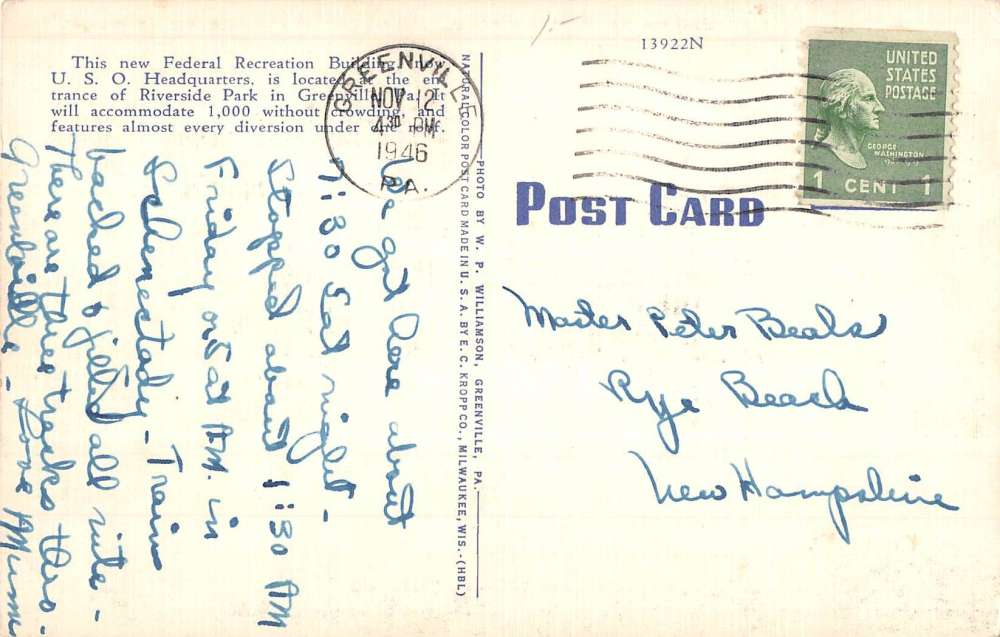 This new Federal Recreation Building, now
U. S. O. Headquarters, is located at the en
trance of Riverside Park in Greenville, Pa. It
will accommodate 1,000 without crowding, and
features almost every diversion under one roof.
We got here about
7:30 Sat night -
Stopped about 1:30 AM
Friday or Sat AM. in
Schenectady - Train
backed & jilted all nite -
There are three tracks thro -
Greenville - Love Mum
PHOTO BY W. P. WILLIAMSON, GREENVILLE, PA.
NATURAL COLOR POST CARD MADE IN U. S. A. BY E. C. KROPP CO., MILWAUKEE, WIS.-(HBL)
GREENVILLE
NOV 12
4 30 PM
1946
PA.
13922N
UNITED
STATES
POSTAGE
GEORGE
WASHINGTON
1 CENT 1
POST CARD
Master Peter Beals
Rye Beach
New Hampshire